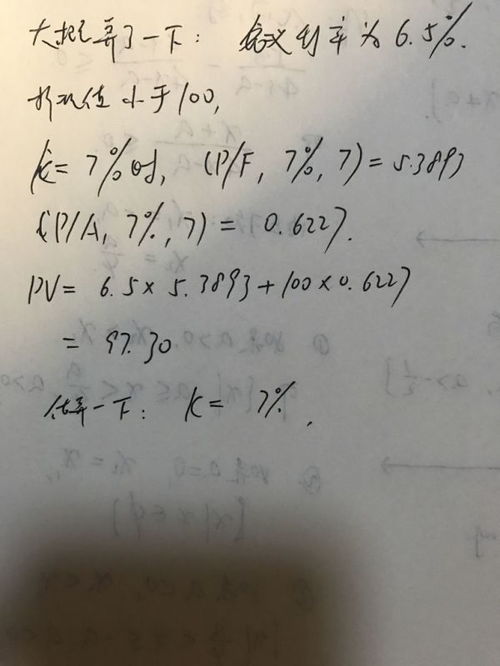 大概算了一下: 名义利率为6.5%.
折现值小于100,
K=7%时, (P/F, 7%, 7)=5.3893
(P/A, 7%, 7) = 0.6227.
PV= 6.5×5.3893+100×0.6227
= 97.30
估算一下: K= 7%.